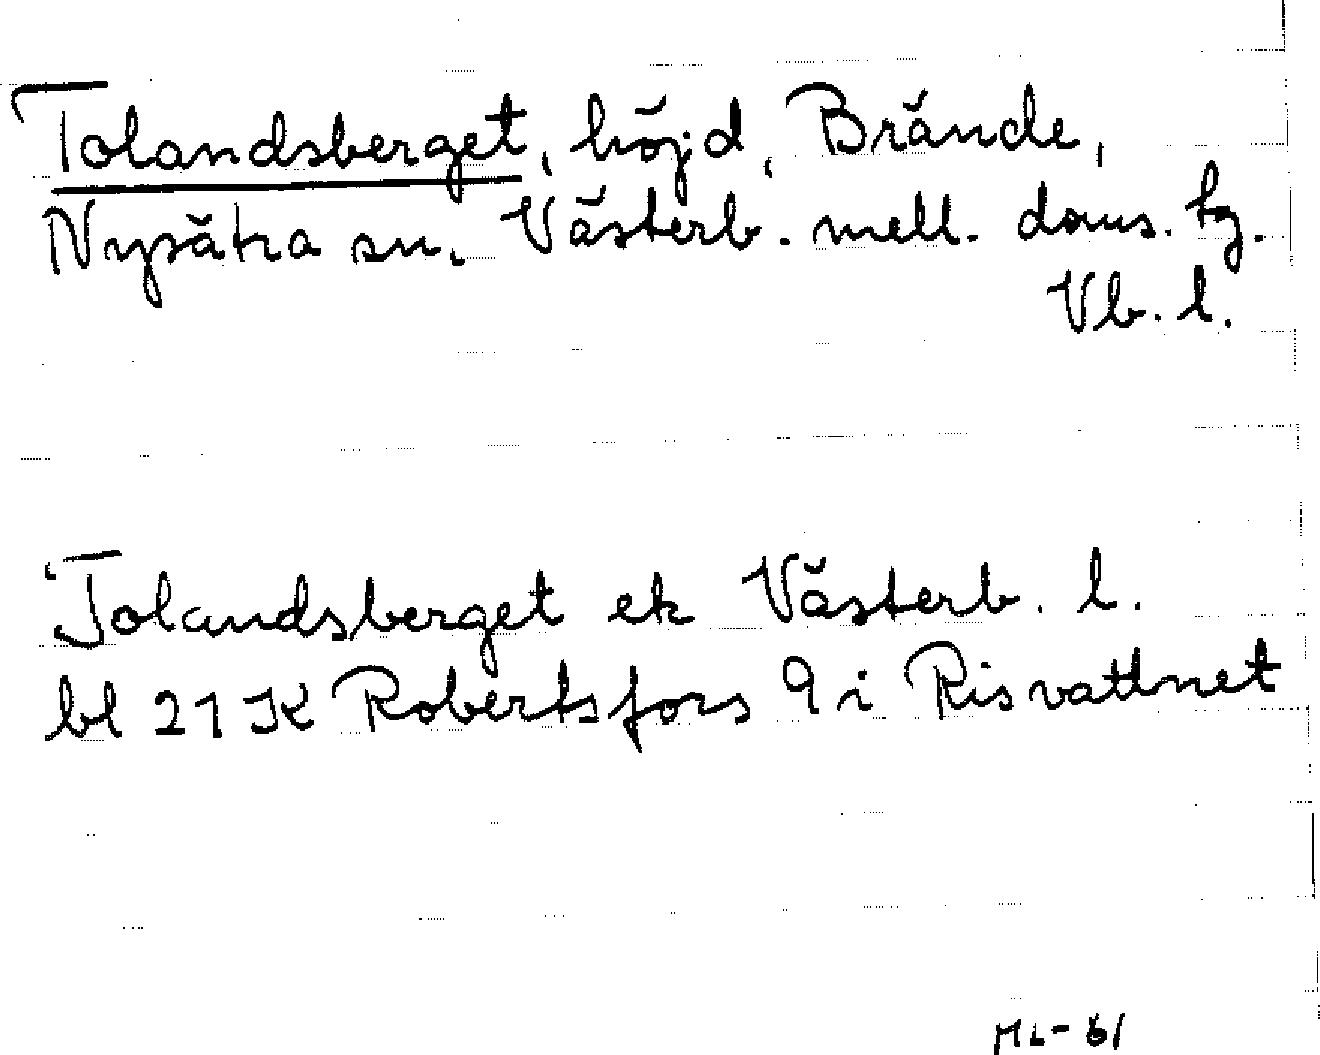 Tolandsberget, höjd, Brände,
Nysätra sn. Västerb. mell. doms. tg.
Vb. l.
Tolandsberget ek Västerb. l.
bl 21 K Robertsfors 9 i Risvattnet
ML-61